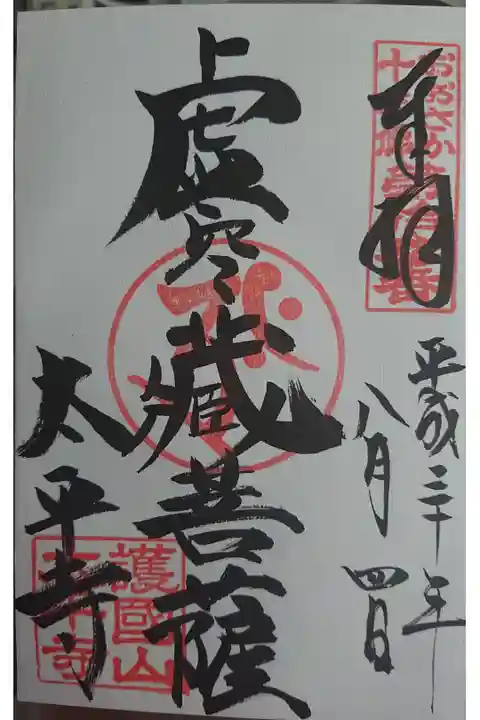 奉拝
おおさか十三佛第十三番
平成三十年
八月四日
虚空藏菩薩
太平寺
護國山
太平寺